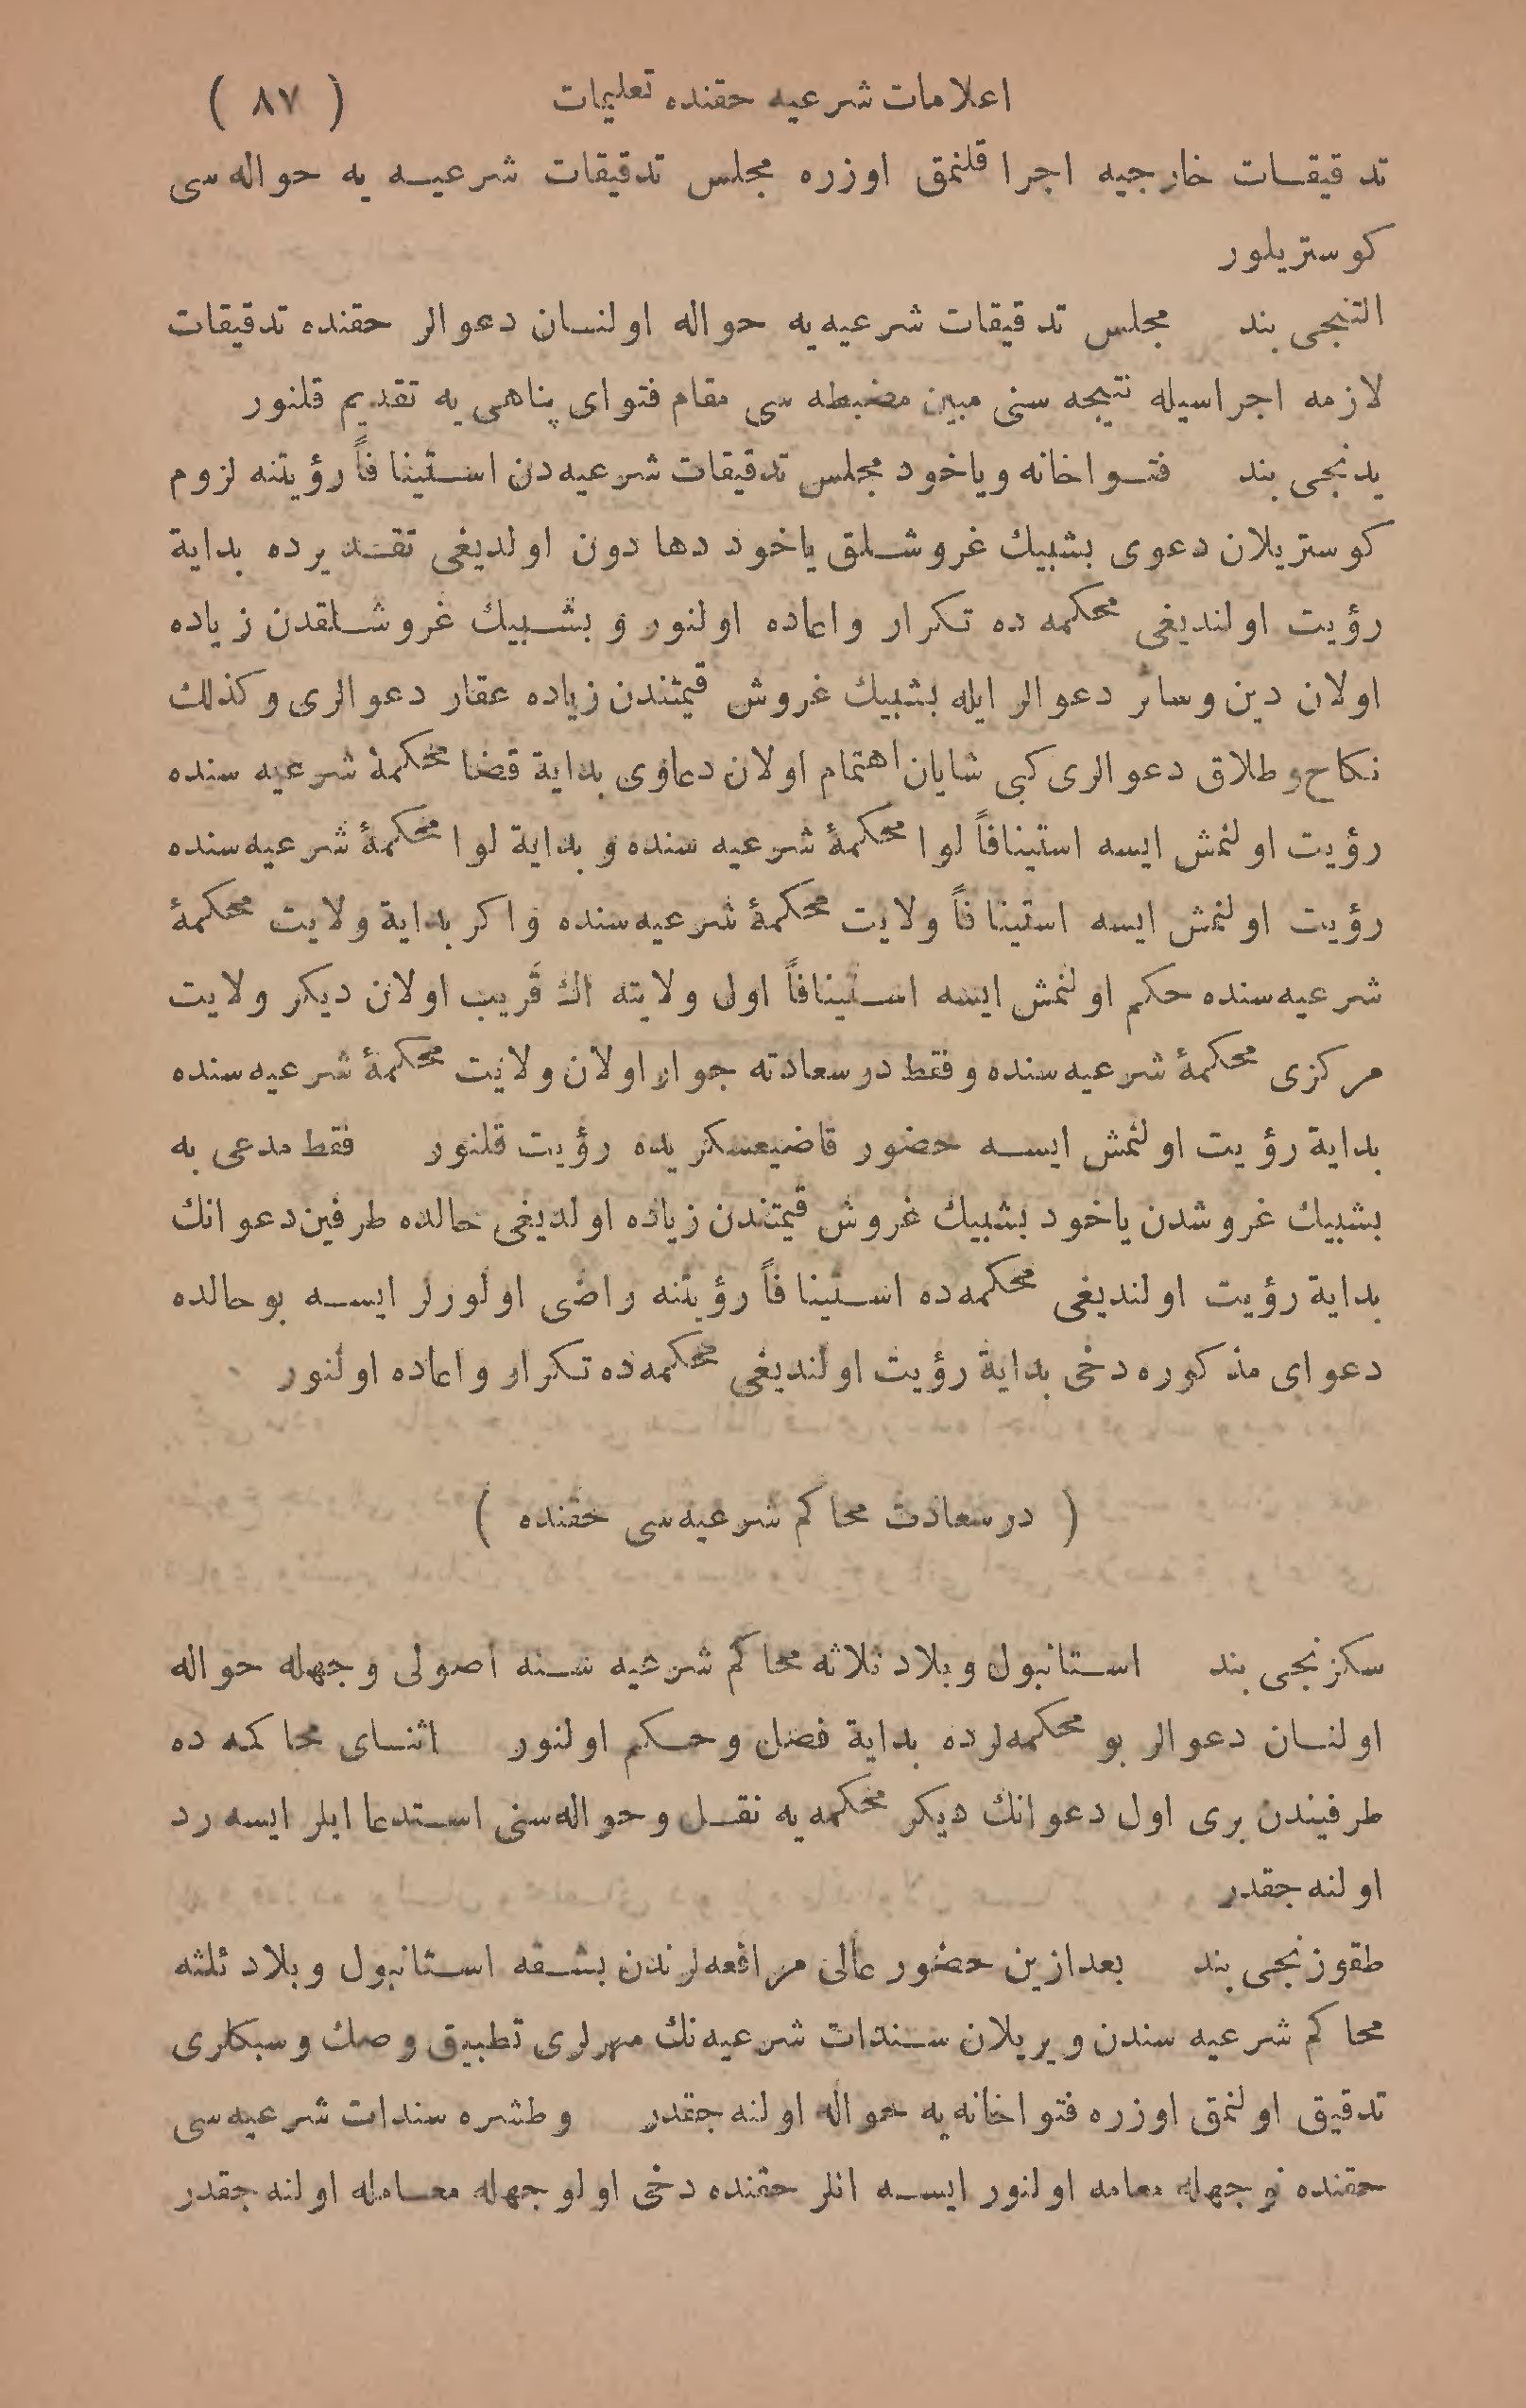 اعلامات شرعیه حقنده تعلیمات ( ٨٧ )
تدقیقـات خارجیه اجرا قلنمق اوزره مجلس تدقیقات شرعیـه یه حواله سی
کوستریلور
التنجی بند مجلس تدقیقات شرعیه یه حواله اولنـان دعوالر حقنده تدقیقات
لازمه اجراسیله نتیجه سنی مبین مضبطه سی مقام فتوای پناهی یه تقدیم قلنور
یدنجی بند فتـواخانه ویاخود مجلس تدقیقات شرعیه دن استینافاً رؤیتنه لزوم
کوستریلان دعوی بشبیك غروشلق یاخود دها دون اولدیغی تقـدیرده بدایة
رؤیت اولندیغی محکمه ده تکرار واعاده اولنور و بشبیك غروشلقدن زیاده
اولان دین وسائر دعوالر ایله بشبیك غروش قیمتندن زیاده عقار دعوالری وکذلك
نکاح و طلاق دعوالری کبی شایان اهتمام اولان دعاوی بدایة قضا محکمۀ شرعیه سنده
رؤیت اولنمش ایسه استینافاً لوا محکمۀ شرعیه سنده و بدایة لوا محکمۀ شرعیه سنده
رؤیت اولنمش ایسه استینافاً ولایت محکمۀ شرعیه سنده واکر بدایة ولایت محکمۀ
شرعیه سنده حکم اولنمش ایسه استینافاً اول ولایته اك قریب اولان دیکر ولایت
مرکزی محکمۀ شرعیه سنده وفقط درسعادته جوار اولان ولایت محکمۀ شرعیه سنده
بدایة رؤیت اولنمش ایسـه حضور قاضیعسکریده رؤیت قلنور فقط مدعی به
بشبیك غروشدن یاخود بشبیك غروش قیمتندن زیاده اولدیغی حالده طرفین دعوانك
بدایة رؤیت اولندیغی محکمه ده استینافاً رؤیتنه راضی اولورلر ایسـه بوحالده
دعوای مذکوره دخی بدایة رؤیت اولندیغی محکمه ده تکرار واعاده اولنور
( درسعادت محاکم شرعیه سی حقنده )
سکزنجی بند استانبول وبلاد ثلاثه محاکم شرعیه سنه اصولی وجهله حواله
اولنـان دعوالر بو محکمه لرده بدایة فصل وحکم اولنور اثنـای محاکمه ده
طرفیندن بری اول دعوانك دیکر محکمه یه نقـل وحواله سنی استدعا ایلر ایسه رد
اولنه جقدر
طقوزنجی بند بعدازین حضور عالی مرافعه لرندن بشقه استانبول وبلاد ثلثه
محاکم شرعیه سندن ویریلان سندات شرعیه نك مهرلری تطبیق وصك وسبکلری
تدقیق اولنمق اوزره فتواخانه یه حواله اولنه جقدر وطشره سندات شرعیه سی
حقنده نوجهله معامه اولنور ایسـه انلر حقنده دخی اولوجهله معـامله اولنه جقدر